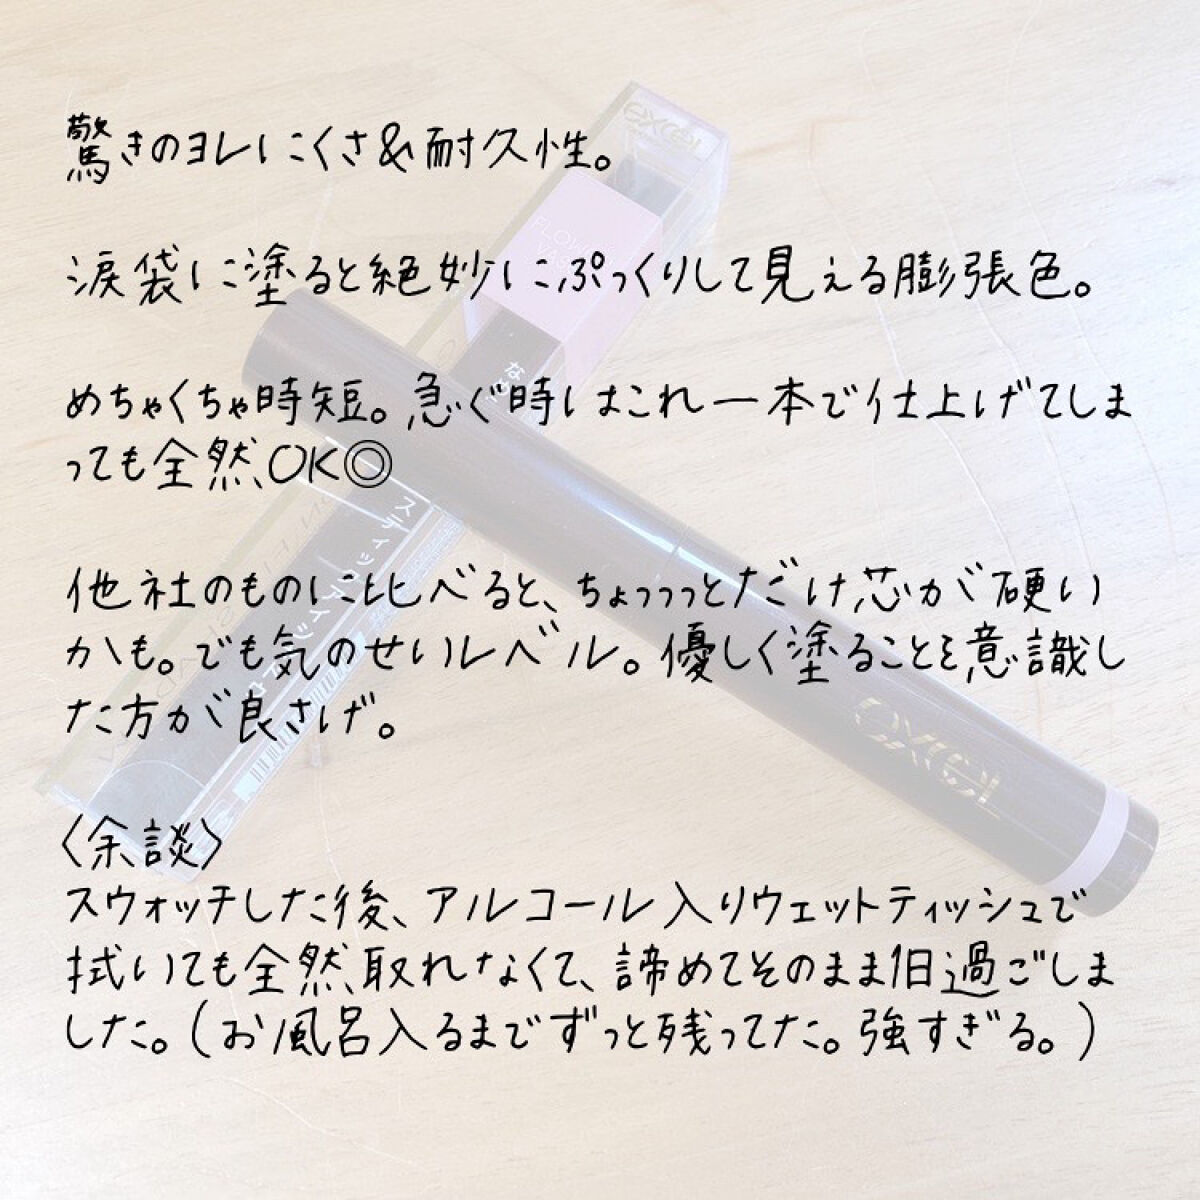 驚きのヨレにくさ&耐久性。
涙袋に塗ると絶妙にぷっくりして見える膨張色。
めちゃくちゃ時短。急ぐ時はこれ一本で仕上げてしま
っても全然OK◎
他社のものに比べると、ちょっっっとだけ芯が硬い
かも。でも気のせいレベル。優しく塗ることを意識し
た方が良さげ。
〈余談〉
スウォッチした後、アルコール入りウェットティッシュで
拭いても全然取れなくて、諦めてそのまま1日過ごしま
した。(お風呂入るまでずっと残ってた。強すぎる。)
excel
excel